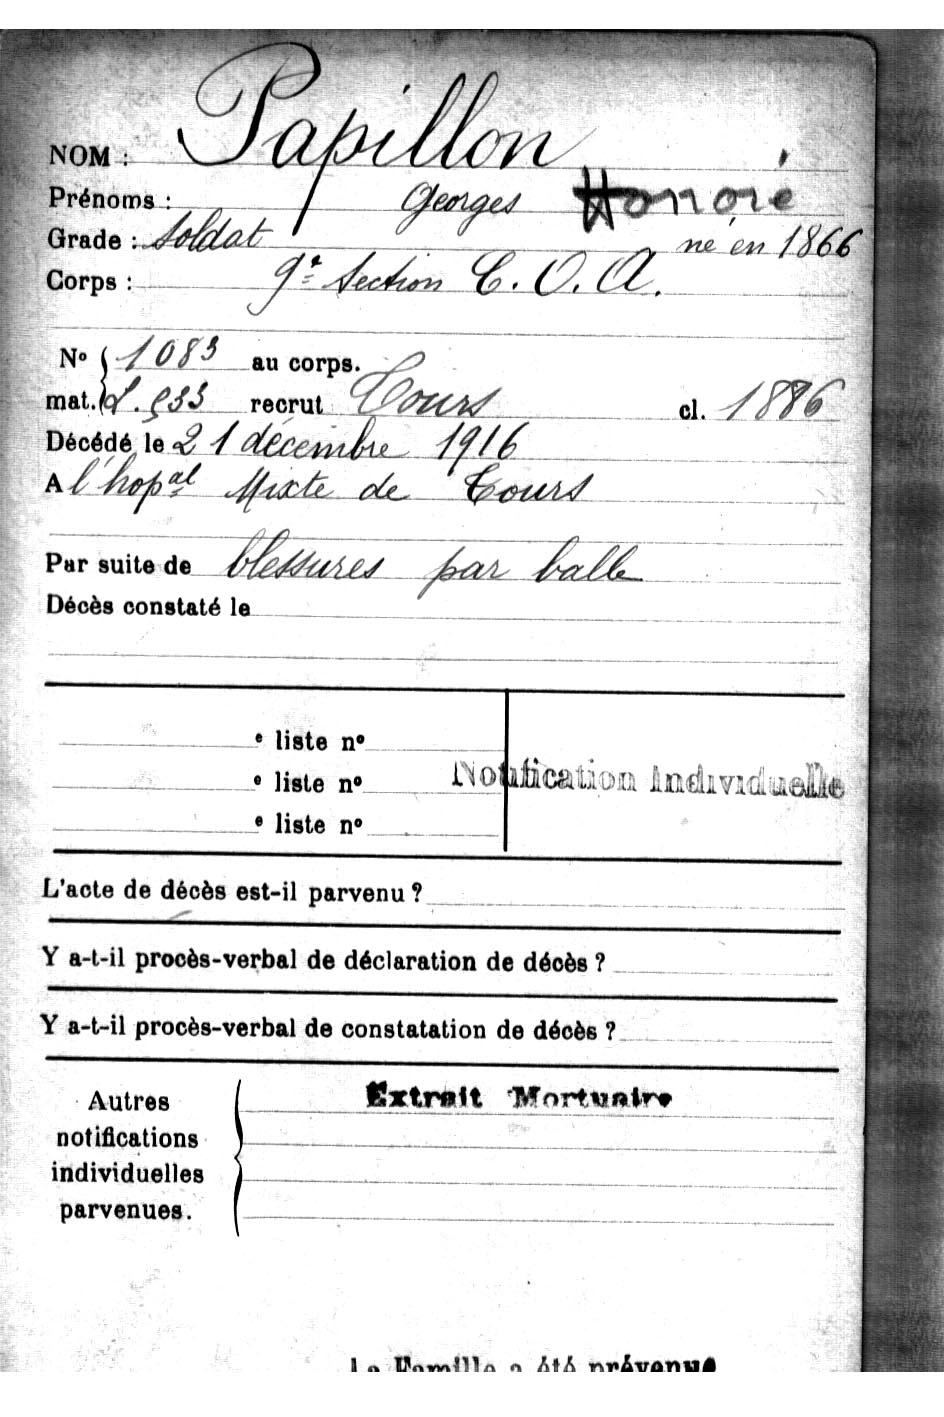 NOM : Papillon
Prénoms : Georges Honoré
Grade : Soldat né en 1866
Corps : 9e Section C. O. A.
No 1083 au corps.
mat. 933 recrut Tours cl. 1886
Décédé le 21 décembre 1916
A l'hopal Mixte de Tours
Par suite de blessures par balle
Décès constaté le
e liste no
e liste no Notification Individuelle
e liste no
L'acte de décès est-il parvenu ?
Y a-t-il procès-verbal de déclaration de décès ?
Y a-t-il procès-verbal de constatation de décès ?
Extrait Mortuaire
Autres
notifications
individuelles
parvenues.
La Famille a été prévenue